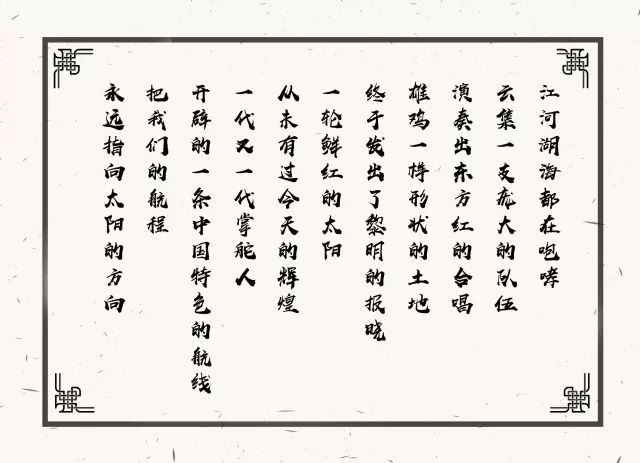 江河湖海都在咆哮
云集一支庞大的队伍
演奏出东方红的合唱
雄鸡一样形状的土地
终于发出了黎明的报晓
一轮鲜红的太阳
从未有过今天的辉煌
一代又一代掌舵人
开辟的一条中国特色的航线
把我们的航程
永远指向太阳的方向